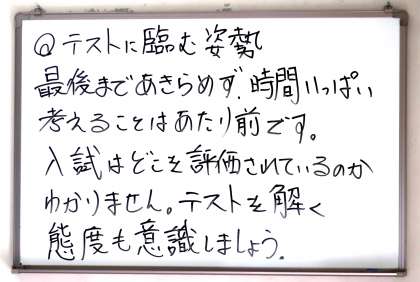 @テストに臨む姿勢
最後まであきらめず、時間いっぱい
考えることはあたり前です。
入試はどこを評価されているのか
わかりません。テストを解く
態度も意識しましょう。